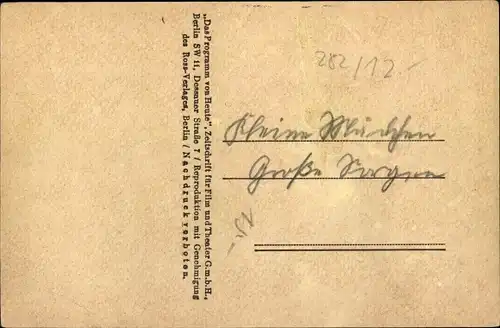 „Das Programm von Heute“, Zeitschrift für Film und Theater G. m. b. H.,
Berlin SW 11, Dessauer Straße 7 / Reproduktion mit Genehmigung
des Ross-Verlages, Berlin / Nachdruck verboten.
282/12.-
Kleine Mädchen
Große Sorgen